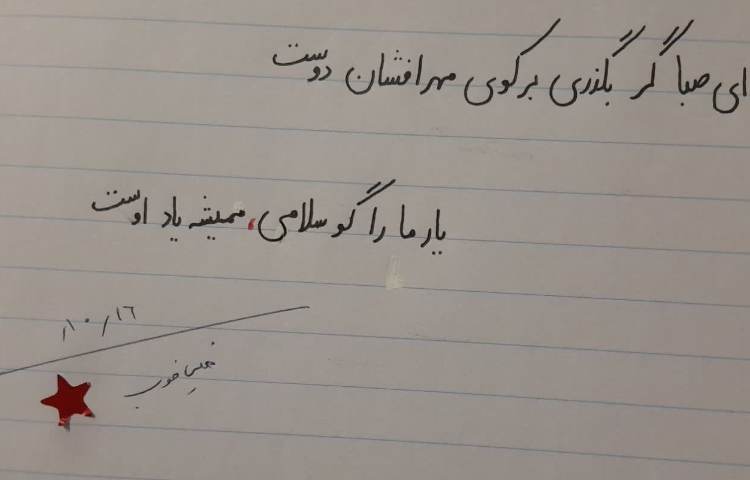 ای صبا گر بگذری بر کوی مهر افشان دوست
یار ما را گو سلامی، همیشه یاد اوست
۱۰/۱۶
خیلی خوب